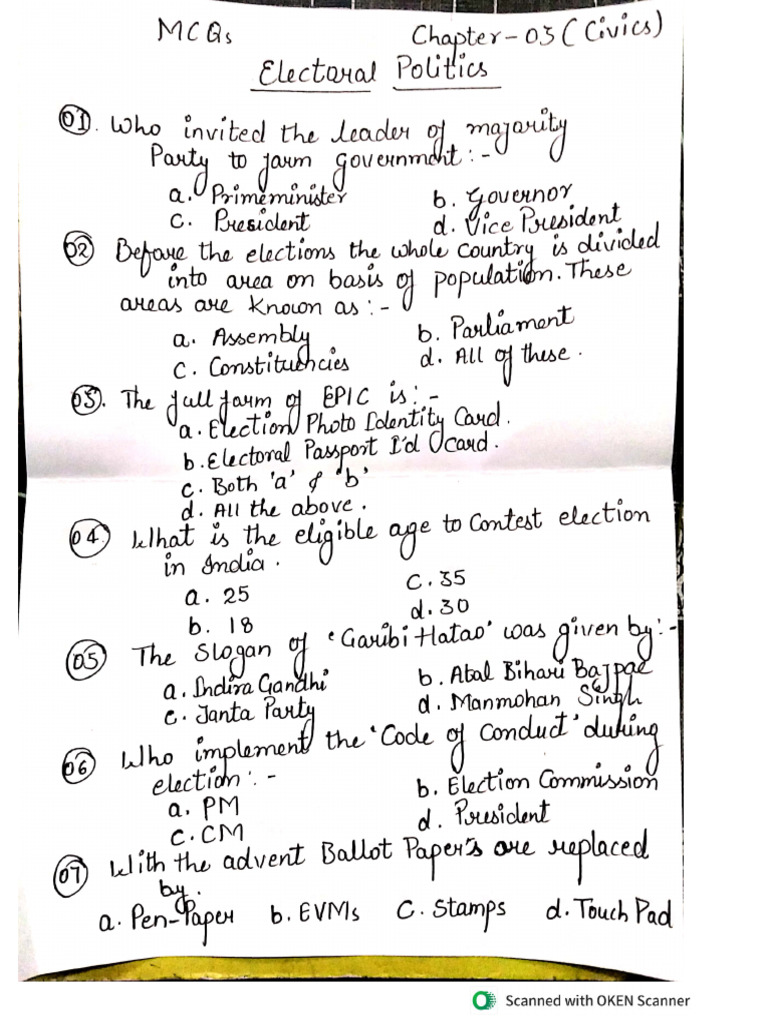 MCQs Chapter-03 (Civics)
Electoral Politics
01. Who invited the leader of majority
Party to form government :-
a. Primeminister b. Governor
c. President d. Vice President
02 Before the elections the whole country is divided
into area on basis of population. These
areas are known as :-
a. Assembly b. Parliament
c. Constituencies d. All of these.
03. The full form of EPIC is :-
a. Election Photo Identity Card.
b. Electoral Passport I'd card.
c. Both 'a' & 'b'
d. All the above.
04. What is the eligible age to contest election
in India.
a. 25 c. 35
b. 18 d. 30
05 The Slogan of 'Garibi Hatao' was given by :-
a. Indira Gandhi b. Atal Bihari Bajpae
c. Janta Party d. Manmohan Singh
06 Who implement the 'Code of Conduct' during
election :-
a. PM b. Election Commission
c. CM d. President
07 With the advent Ballot Paper's are replaced
by.
a. Pen-Paper b. EVMs c. Stamps d. Touch Pad
Scanned with OKEN Scanner